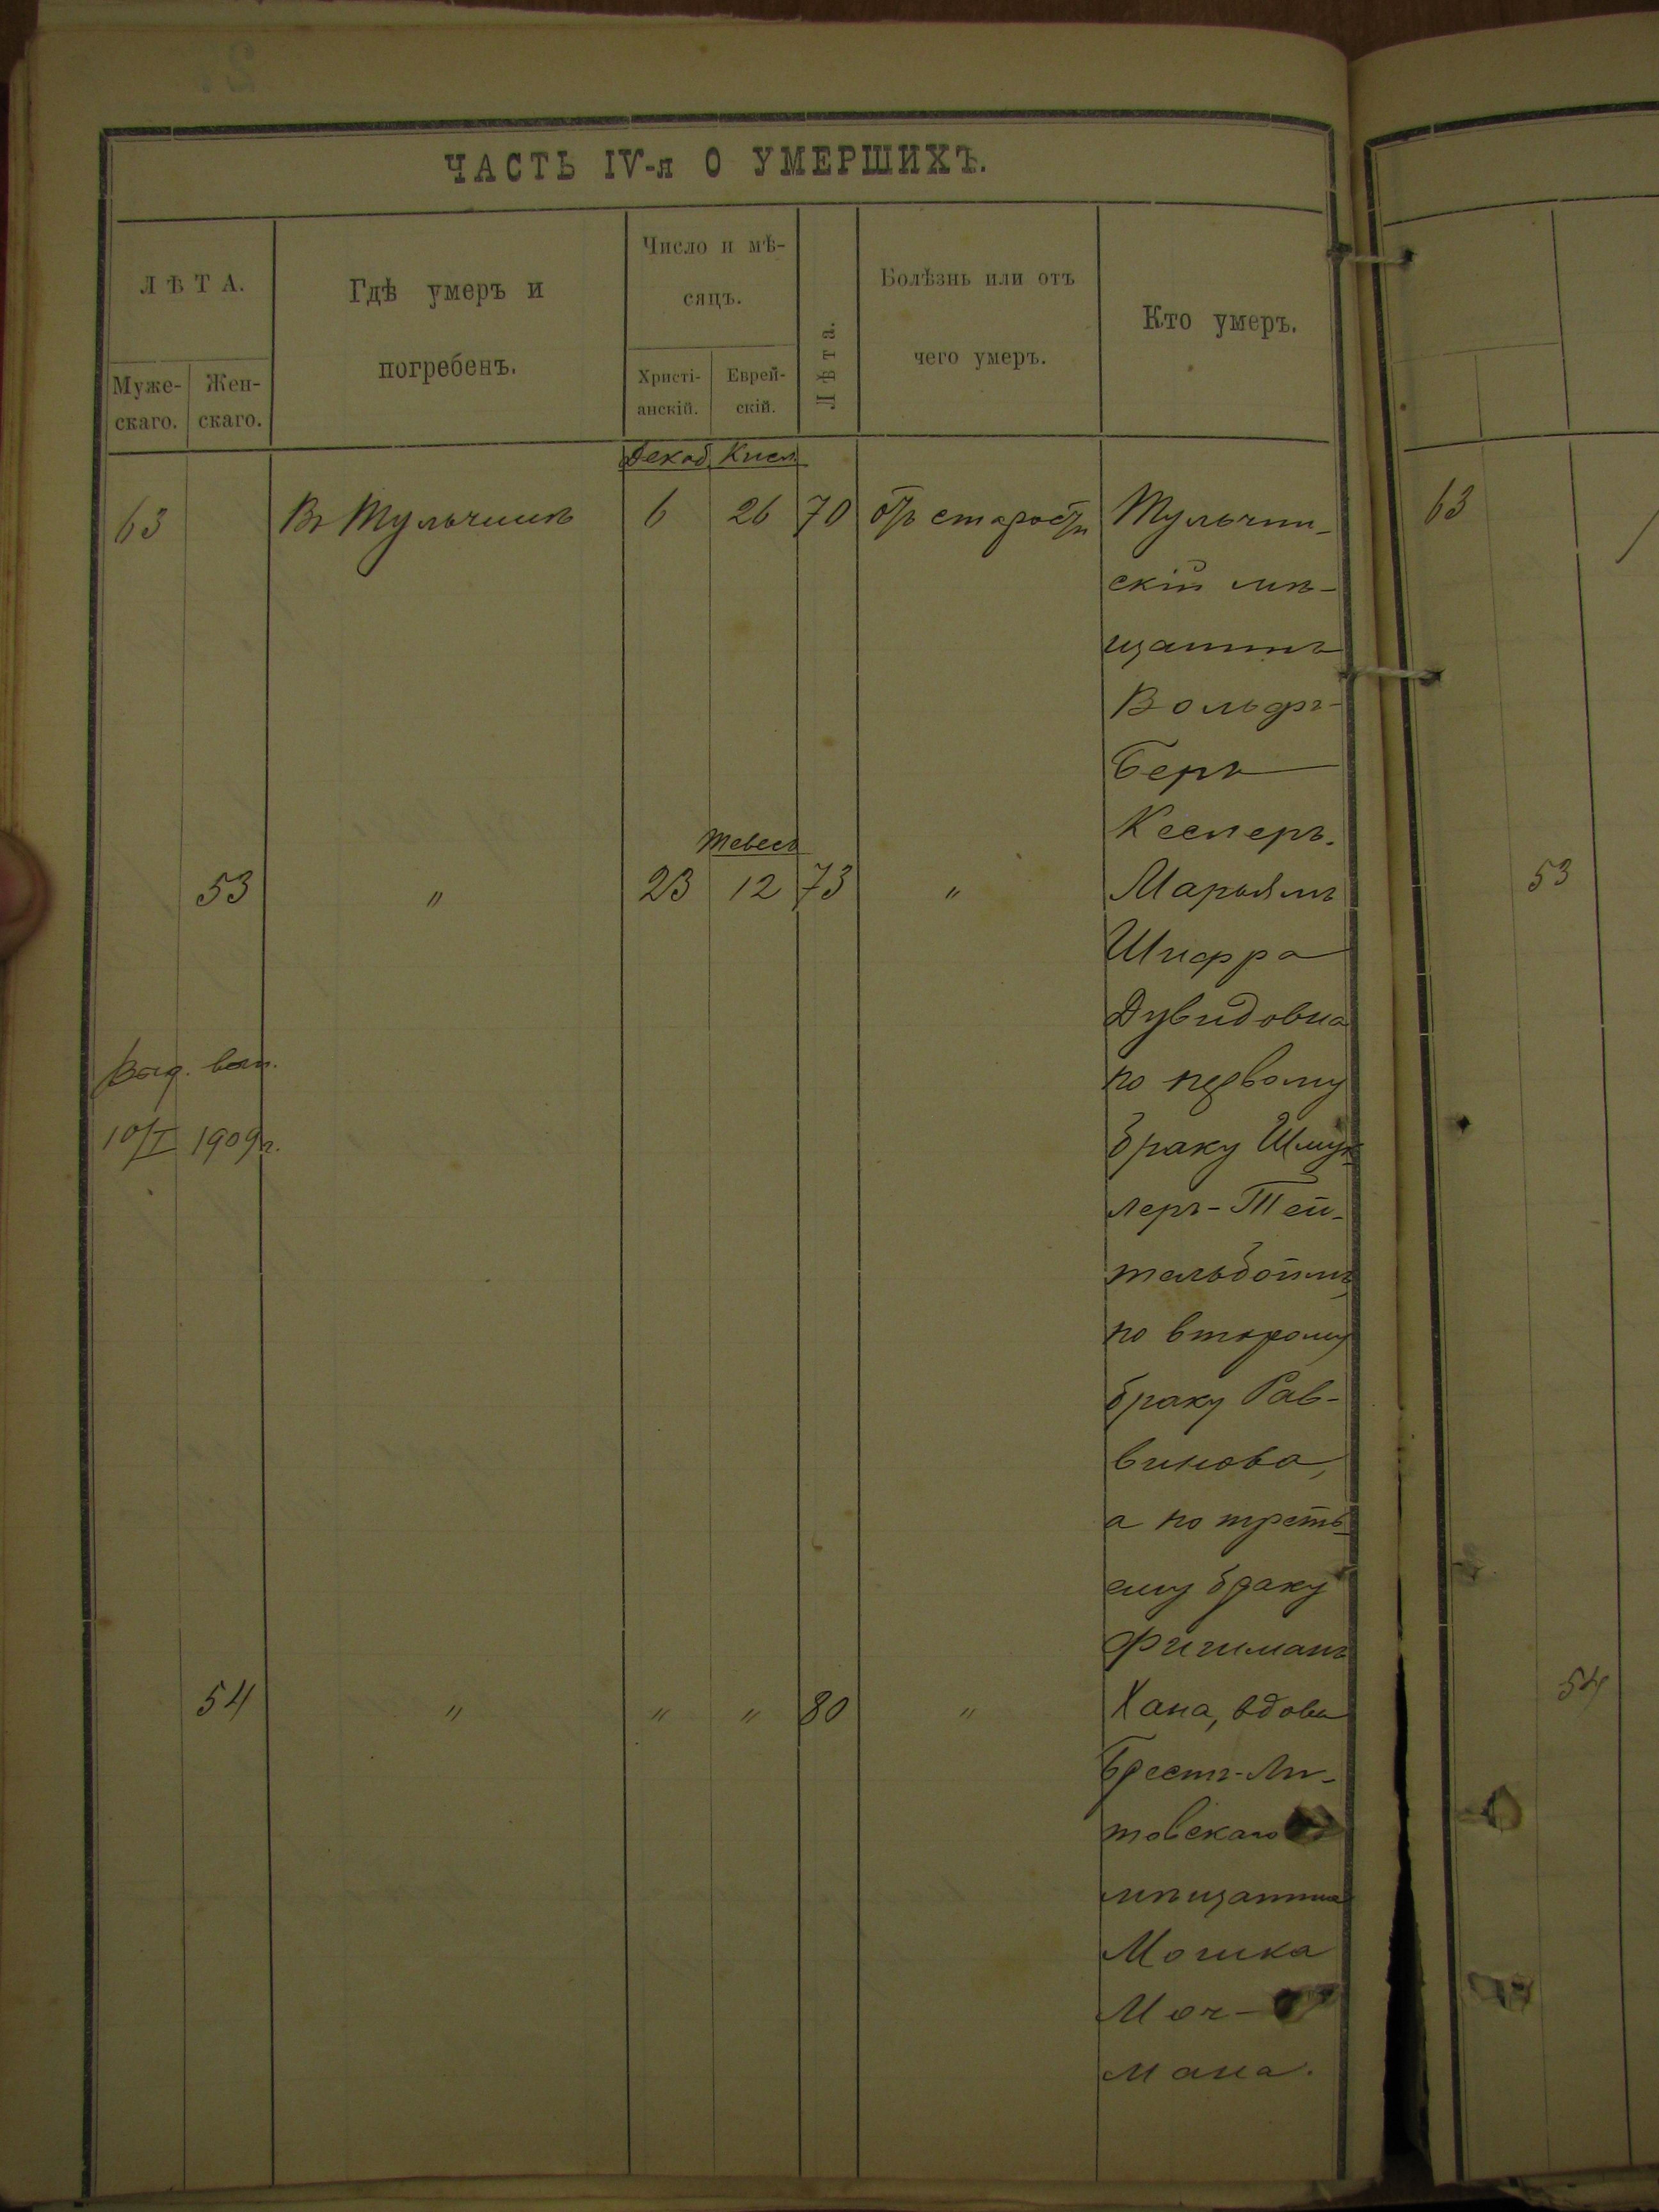 ЧАСТЬ IV-я О УМЕРШИХЪ.
ЛѢТА.
Муже-
скаго.
Жен-
скаго.
Гдѣ умеръ и
погребенъ.
Число и мѣ-
сяцъ.
Христі-
анскій.
Еврей-
скій.
Лѣта.
Болѣзнь или отъ
чего умеръ.
Кто умеръ.
Декаб. Кисл.
63 Въ Тульчинѣ 6 26 70 отъ старости Тульчин-
скій мѣ-
щанинъ
Вольфъ-
Беръ
Кеслеръ.
Тевесъ
53 " 23 12 73 " Марьямъ
Шифра
Дувидовна
по первому
браку Шмук-
леръ-Тей-
тельбоймъ,
по второму
браку Рав-
винова,
а по треть-
ему браку
Фишманъ
Выд. вып.
10/I 1909 г.
54 " " " 80 " Хана, вдова
Брестъ-Ли-
товскаго
мѣщанина
Мошка
Мами.
63
53
54